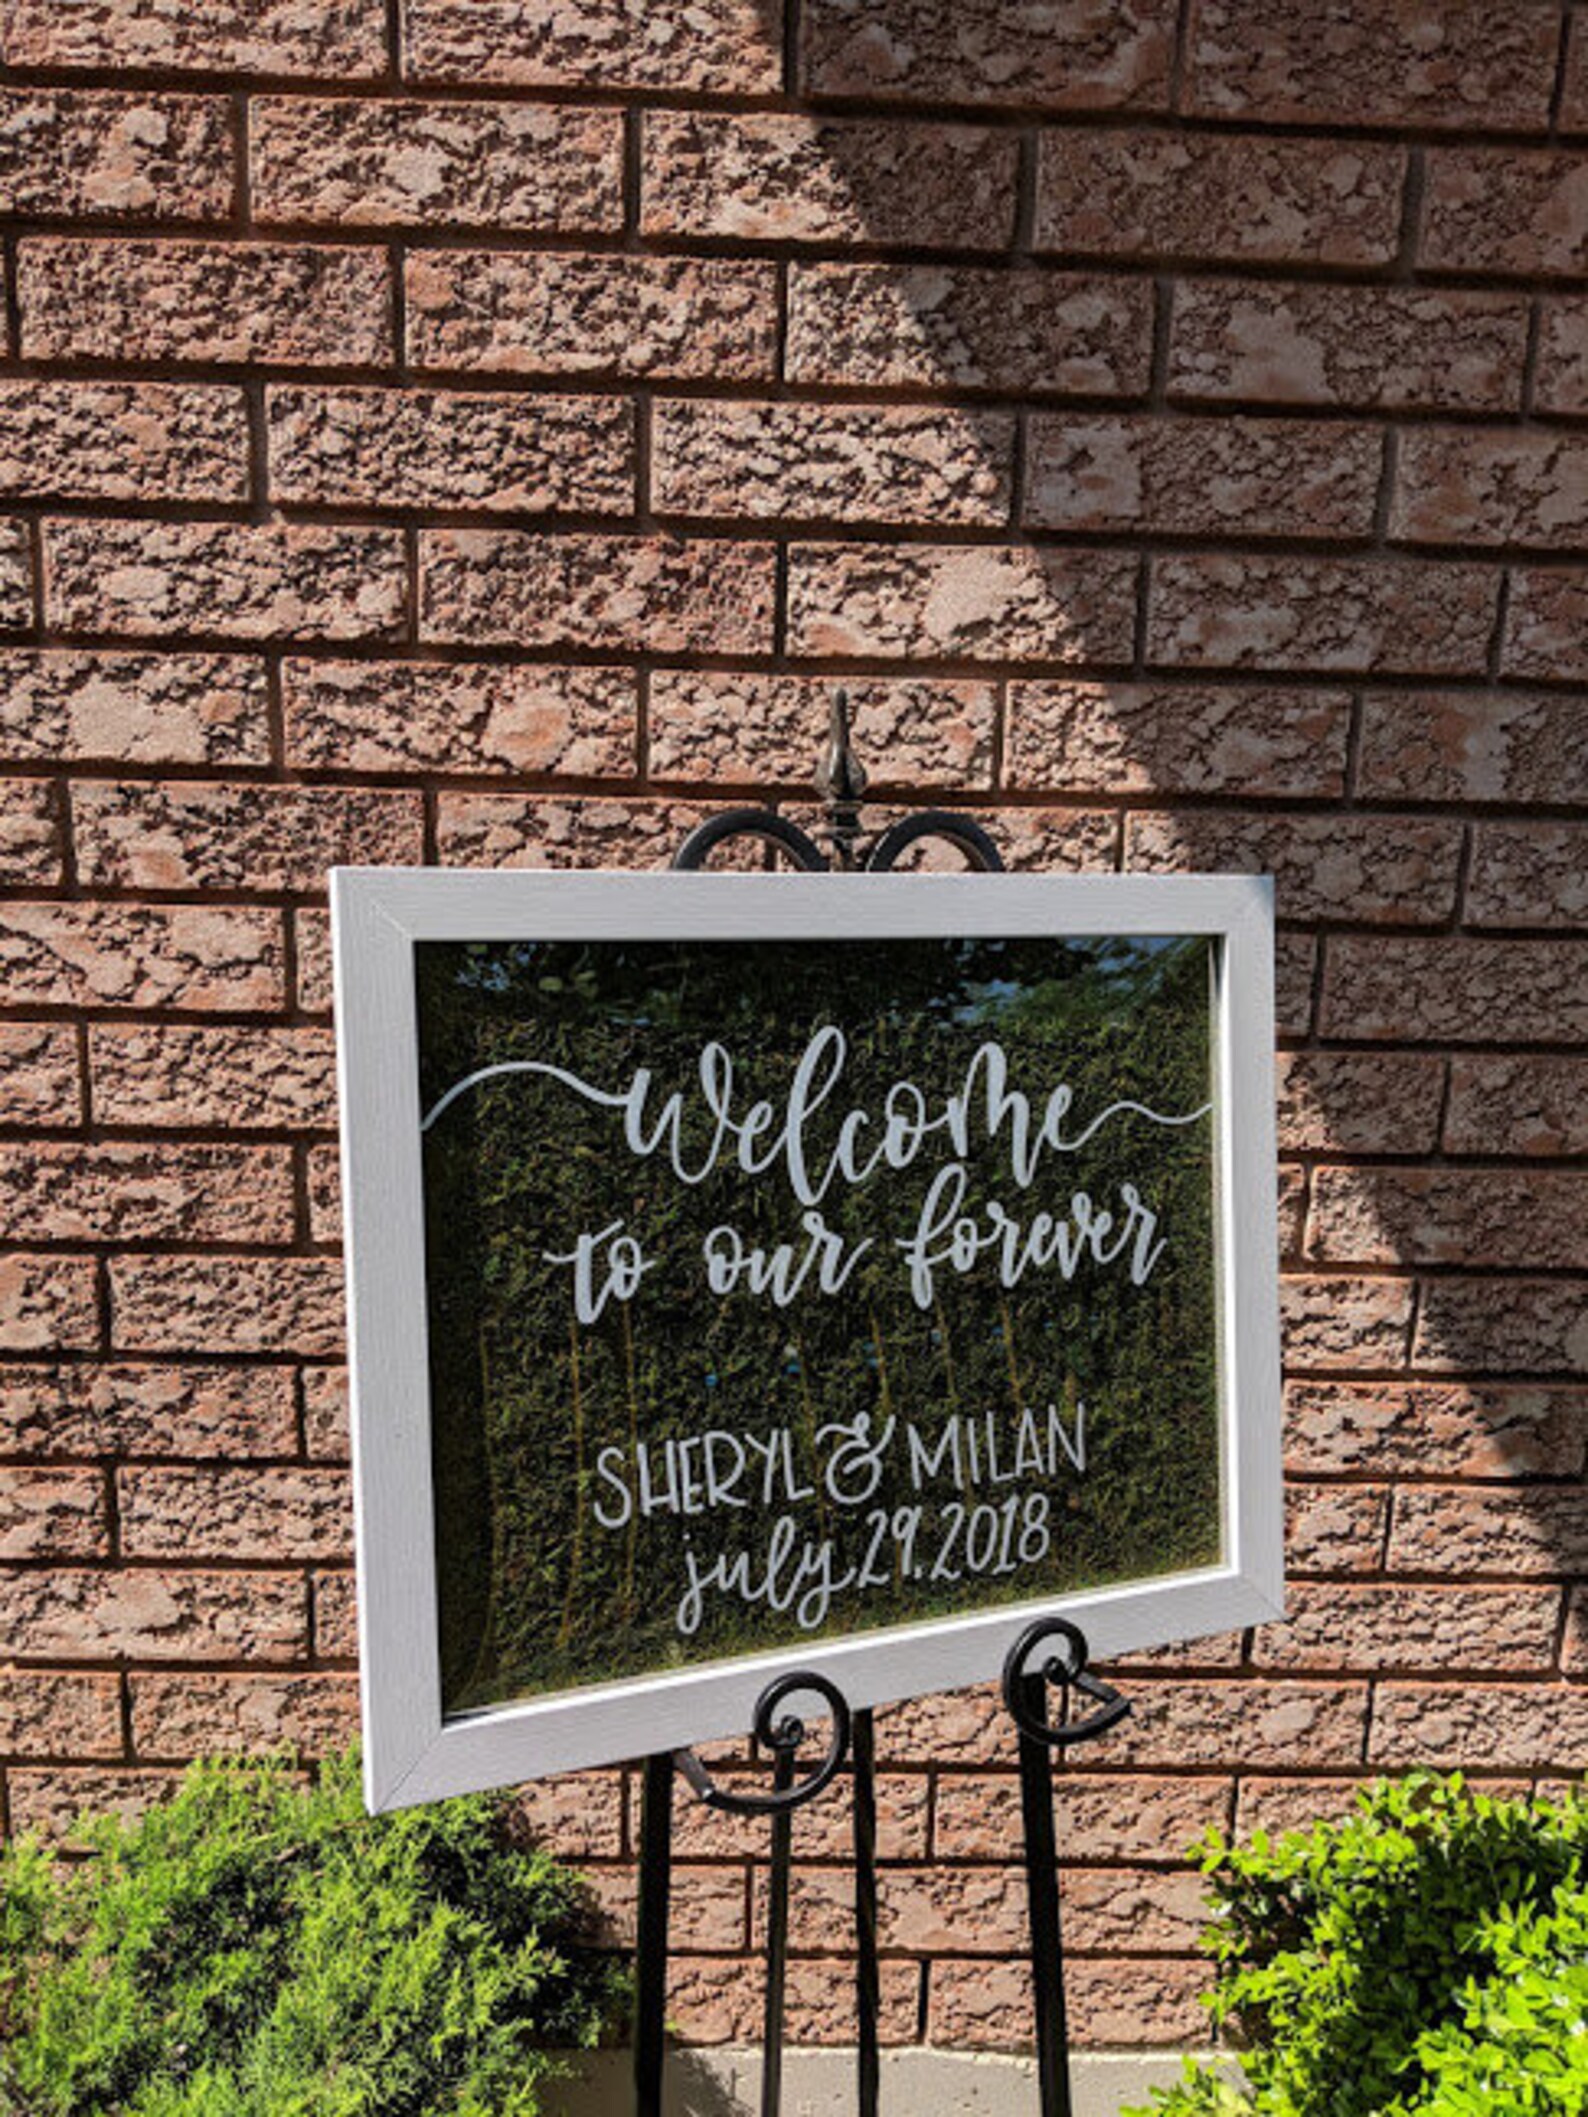 Welcome
to our forever
SHERYL & MILAN
july.29.2018